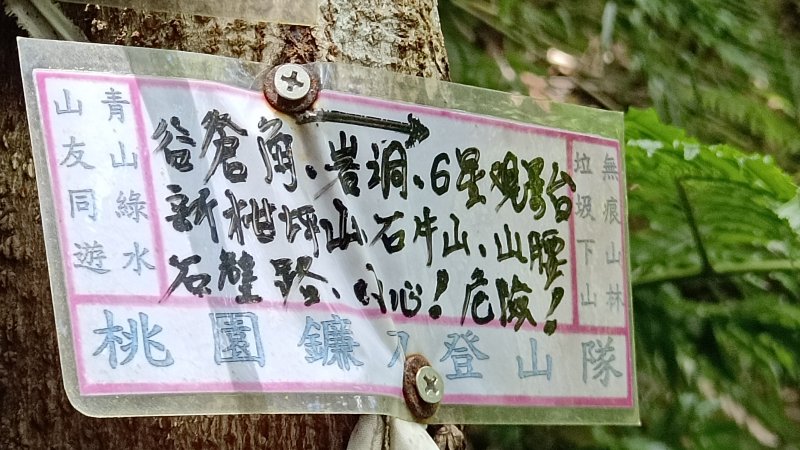 青山綠水
山友同遊
谷倉角、岩洞、6星观景台
新桃坪山、石牛山、山腰
石壁路、小心!危險!
無痕山林
垃圾下山
桃園鐮刀登山隊